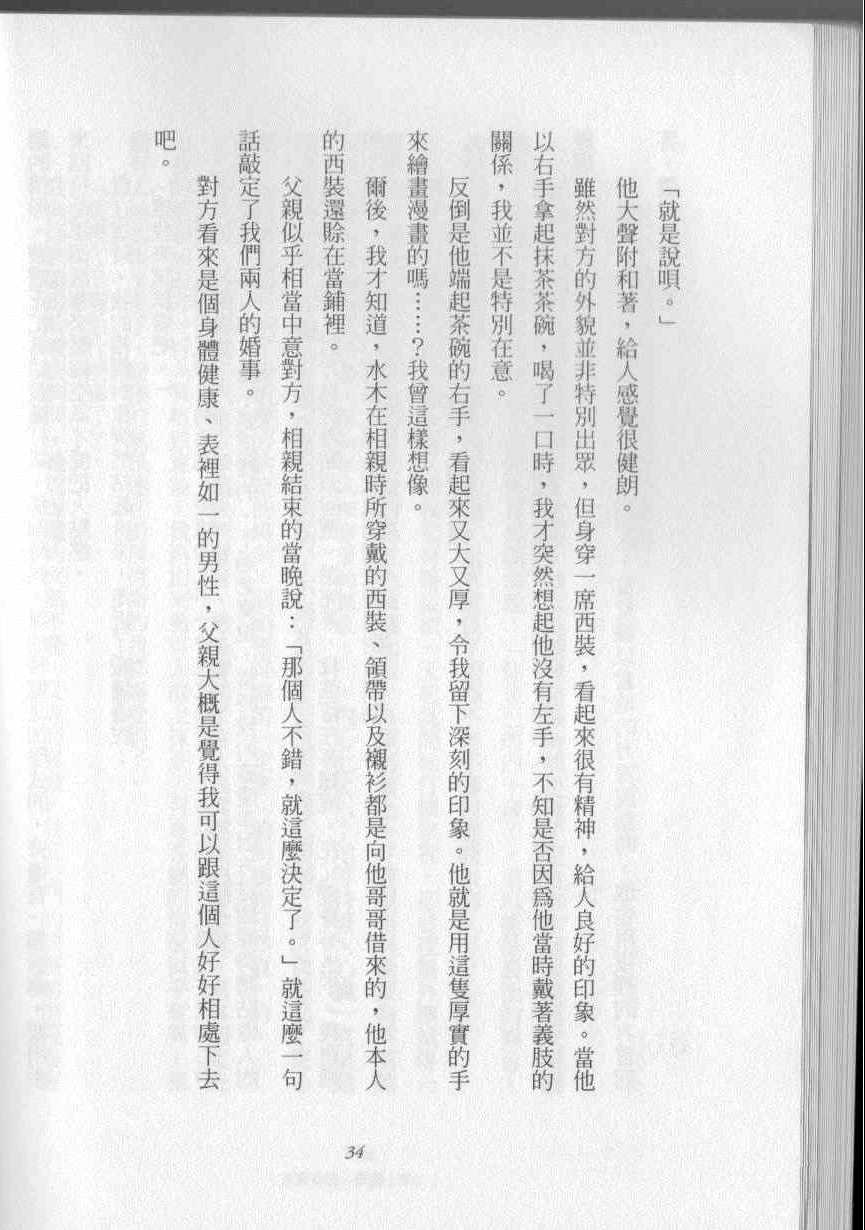 「就是說唄。」
他大聲附和著，給人感覺很健朗。
雖然對方的外貌並非特別出眾，但身穿一席西裝，看起來很有精神，給人良好的印象。當他
以右手拿起抹茶茶碗，喝了一口時，我才突然想起他沒有左手，不知是否因爲他當時戴著義肢的
關係，我並不是特別在意。
反倒是他端起茶碗的右手，看起來又大又厚，令我留下深刻的印象。他就是用這隻厚實的手
來繪畫漫畫的嗎……？我曾這樣想像。
爾後，我才知道，水木在相親時所穿戴的西裝、領帶以及襯衫都是向他哥哥借來的，他本人
的西裝還賒在當鋪裡。
父親似乎相當中意對方，相親結束的當晚說：「那個人不錯，就這麼決定了。」就這麼一句
話敲定了我們兩人的婚事。
對方看來是個身體健康、表裡如一的男性，父親大概是覺得我可以跟這個人好好相處下去
吧。
34